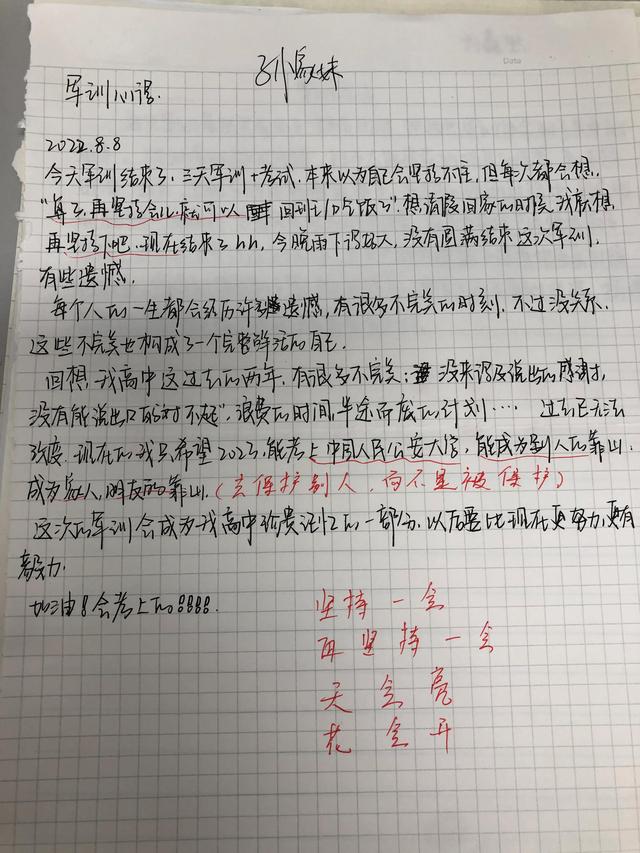 Data
军训心得.
2022.8.8
今天军训结束了.三天军训+考试.本来以为自己会坚持不住.但每次都会想.
再坚持会儿就可以 回到 吃饭了".想请假回家的时候我就想.
再坚持下吧.现在结束了hh,今晚雨下得好大,没有圆满结束这次军训,
有些遗憾.
每个人的一生都会经历许多遗憾,有很多不完美的时刻.不过没关系.
这些不完美也构成了一个完整鲜活的自己.
回想我高中这过去的两年,有很多不完美:没来得及说出的感谢,
没有能说出口的"对不起",浪费的时间,半途而废的计划……过去已无法
改变.现在的我只希望2023,能考上中国人民公安大学,能成为别人的靠山.
成为家人,朋友的靠山.(去保护别人,而不是被保护)
这次的军训会成为我高中珍贵记忆的一部分.以后要比现在更努力,更有
毅力.
加油!会考上的!!!!
坚持一会
再坚持一会
天会亮
花会开